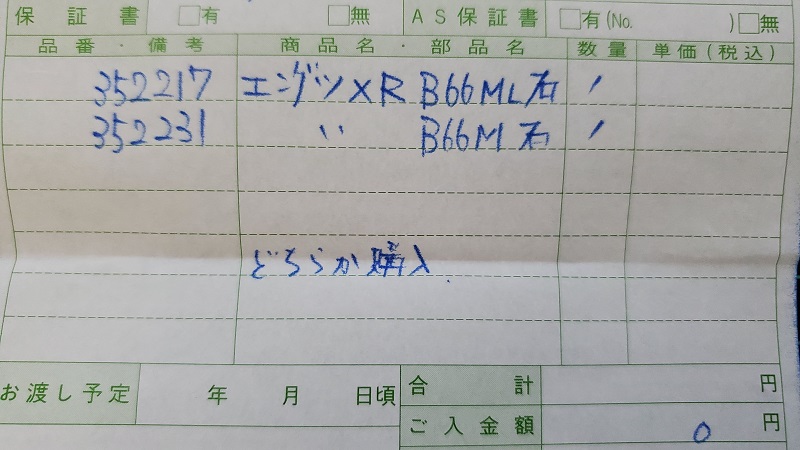 保証書 □有 □無 AS保証書 □有(No. )□無
品番・備考 商品名・部品名 数量 単価(税込)
352217 エンゲツXR B66ML右 1
352231 〃 B66M右 1
どちらか購入
お渡し予定 年 月 日頃 合計 円
ご入金額 0円